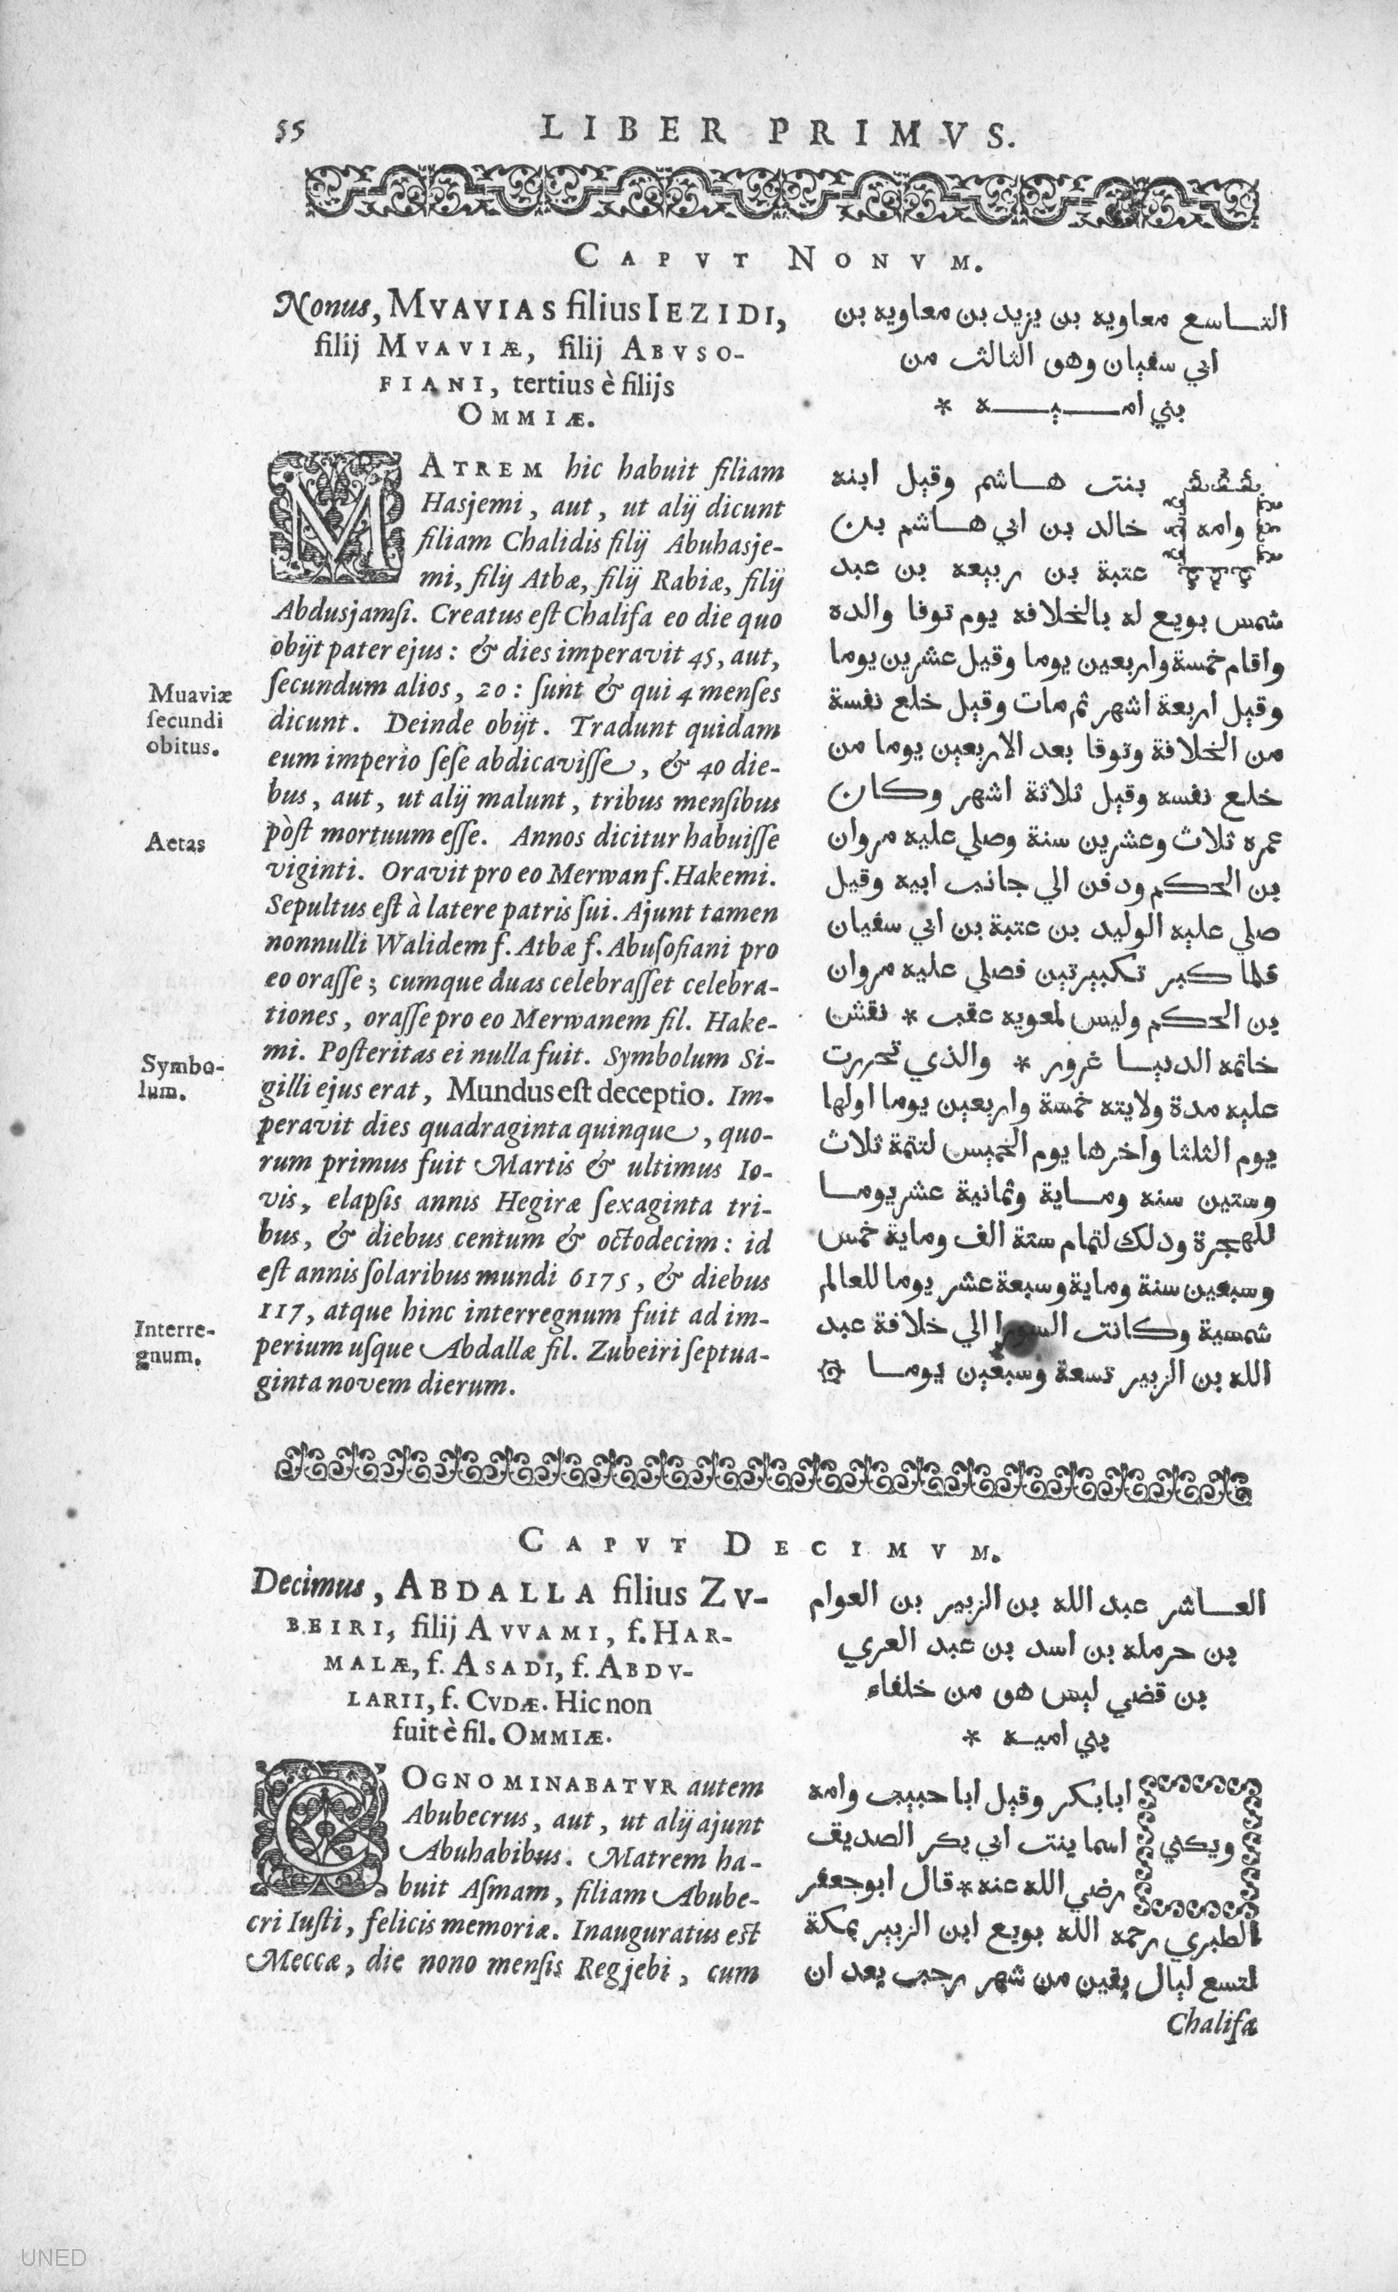 55 LIBER PRIMVS.
CAPVT NONVM.
Nonus, MVAVIAS filius IEZIDI,
filij MVAVIÆ, filij ABVSO-
FIANI, tertius è filijs
OMMIÆ.
MATREM hic habuit filiam
Hasjemi, aut, ut alij dicunt
filiam Chalidis filij Abuhasje-
mi, filij Atbæ, filij Rabiæ, filij
Abdusjamsi. Creatus est Chalifa eo die quo
obijt pater ejus: & dies imperavit 45, aut,
secundum alios, 20: sunt & qui 4 menses
dicunt. Deinde obijt. Tradunt quidam
eum imperio sese abdicavisse, & 40 die-
bus, aut, ut alij malunt, tribus mensibus
pòst mortuum esse. Annos dicitur habuisse
viginti. Oravit pro eo Merwan f. Hakemi.
Sepultus est à latere patris sui. Ajunt tamen
nonnulli Walidem f. Atbæ f. Abusofiani pro
eo orasse; cumque duas celebrasset celebra-
tiones, orasse pro eo Merwanem fil. Hake-
mi. Posteritas ei nulla fuit. Symbolum Si-
gilli ejus erat, Mundus est deceptio. Im-
peravit dies quadraginta quinque, quo-
rum primus fuit Martis & ultimus Io-
vis, elapsis annis Hegiræ sexaginta tri-
bus, & diebus centum & octodecim: id
est annis solaribus mundi 6175, & diebus
117, atque hinc interregnum fuit ad im-
perium usque Abdallæ fil. Zubeiri septua-
ginta novem dierum.
Muaviæ
secundi
obitus.
Aetas
Symbo-
lum.
Interre-
gnum.
التاسع معاويه بن يزيد بن معاويه بن
ابي سفيان وهو الثالث من
بني اميه *
وامه
بنت هاشم وقيل ابنه
خالد بن ابي هاشم بن
عتبة بن ربيعه بن عبد
شمس بويع له بالخلافه يوم توفا والده
واقام خمسة واربعين يوما وقيل عشرين يوما
وقيل اربعة اشهر ثم مات وقيل خلع نفسة
من الخلافة وتوفا بعد الاربعين يوما من
خلع نفسه وقيل ثلاثة اشهر وكان
عمره ثلاث وعشرين سنة وصلي عليه مروان
بن الحكم ودفن الي جانب ابيه وقيل
صلي عليه الوليد بن عتبة بن ابي سفيان
فلما كبر تكبيرتين فصلي عليه مروان
بن الحكم وليس لمعويه عقب * نقش
خاتمه الدنيا غرور * والذي تحررت
عليه مدة ولايته خمسة واربعين يوما اولها
يوم الثلثا واخرها يوم الخميس لتتمة ثلاث
وستين سنه وماية وثمانية عشر يوما
للهجرة ودلك لتمام ستة الف وماية خمس
وسبعين سنة وماية وسبعة عشر يوما للعالم
شمسية وكانت الي خلافة عبد
الله بن الزبير تسعة وسبعين يوما
CAPVT DECIMVM.
Decimus, ABDALLA filius ZV-
BEIRI, filij AVVAMI, f. HAR-
MALÆ, f. ASADI, f. ABDV-
LARII, f. CVDÆ. Hic non
fuit è fil. OMMIÆ.
COGNOMINABATVR autem
Abubecrus, aut, ut alij ajunt
Abuhabibus. Matrem ha-
buit Asmam, filiam Abube-
cri Iusti, felicis memoriæ. Inauguratus est
Meccæ, die nono mensis Regjebi, cum
العاشر عبد الله بن الزبير بن العوام
بن حرمله بن اسد بن عبد العري
بن قضي ليس هو من خلفاء
بني اميه *
ويكني
ابابكر وقيل ابا حبيب وامه
اسما بنت ابي بكر الصديق
رضي الله عنه * قال ابو جعفر
الطبري رحمه الله بويع ابن الزبير بمكة
لتسع ليال بقين من شهر رجب بعد ان
Chalifæ
UNED